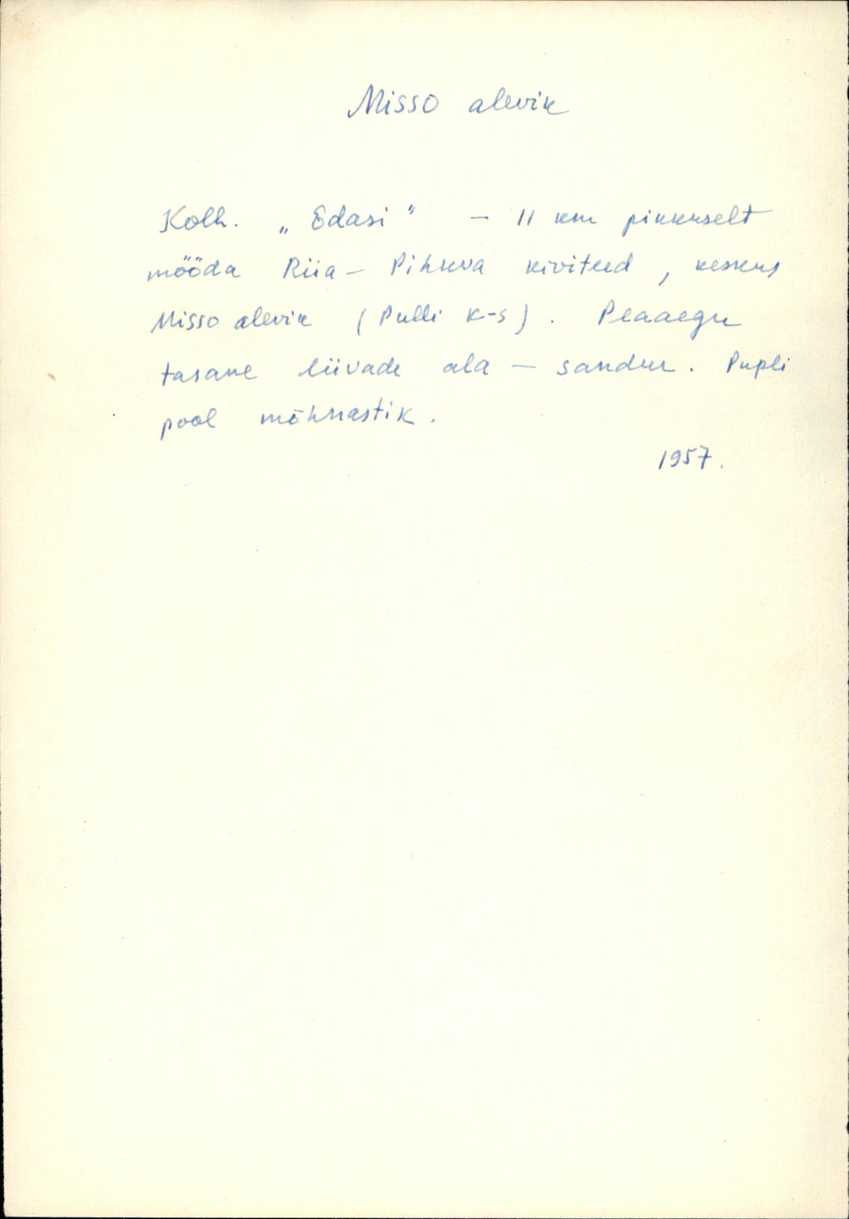 Misso alevik
Kolh. „Edasi" – 11 km pikkuselt
mööda Riia – Pihkva kiviteed, keskus
Misso alevik (Pulli k-s). Peaaegu
tasane liivade ala – sandur. Pupli
pool mõhnastik.
1957.